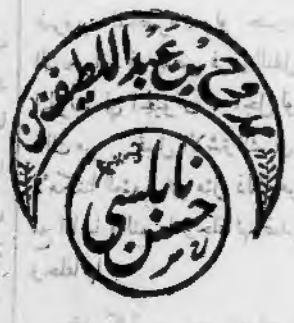 ممدوح بن عبد اللطيف بن
حسن نابلسي